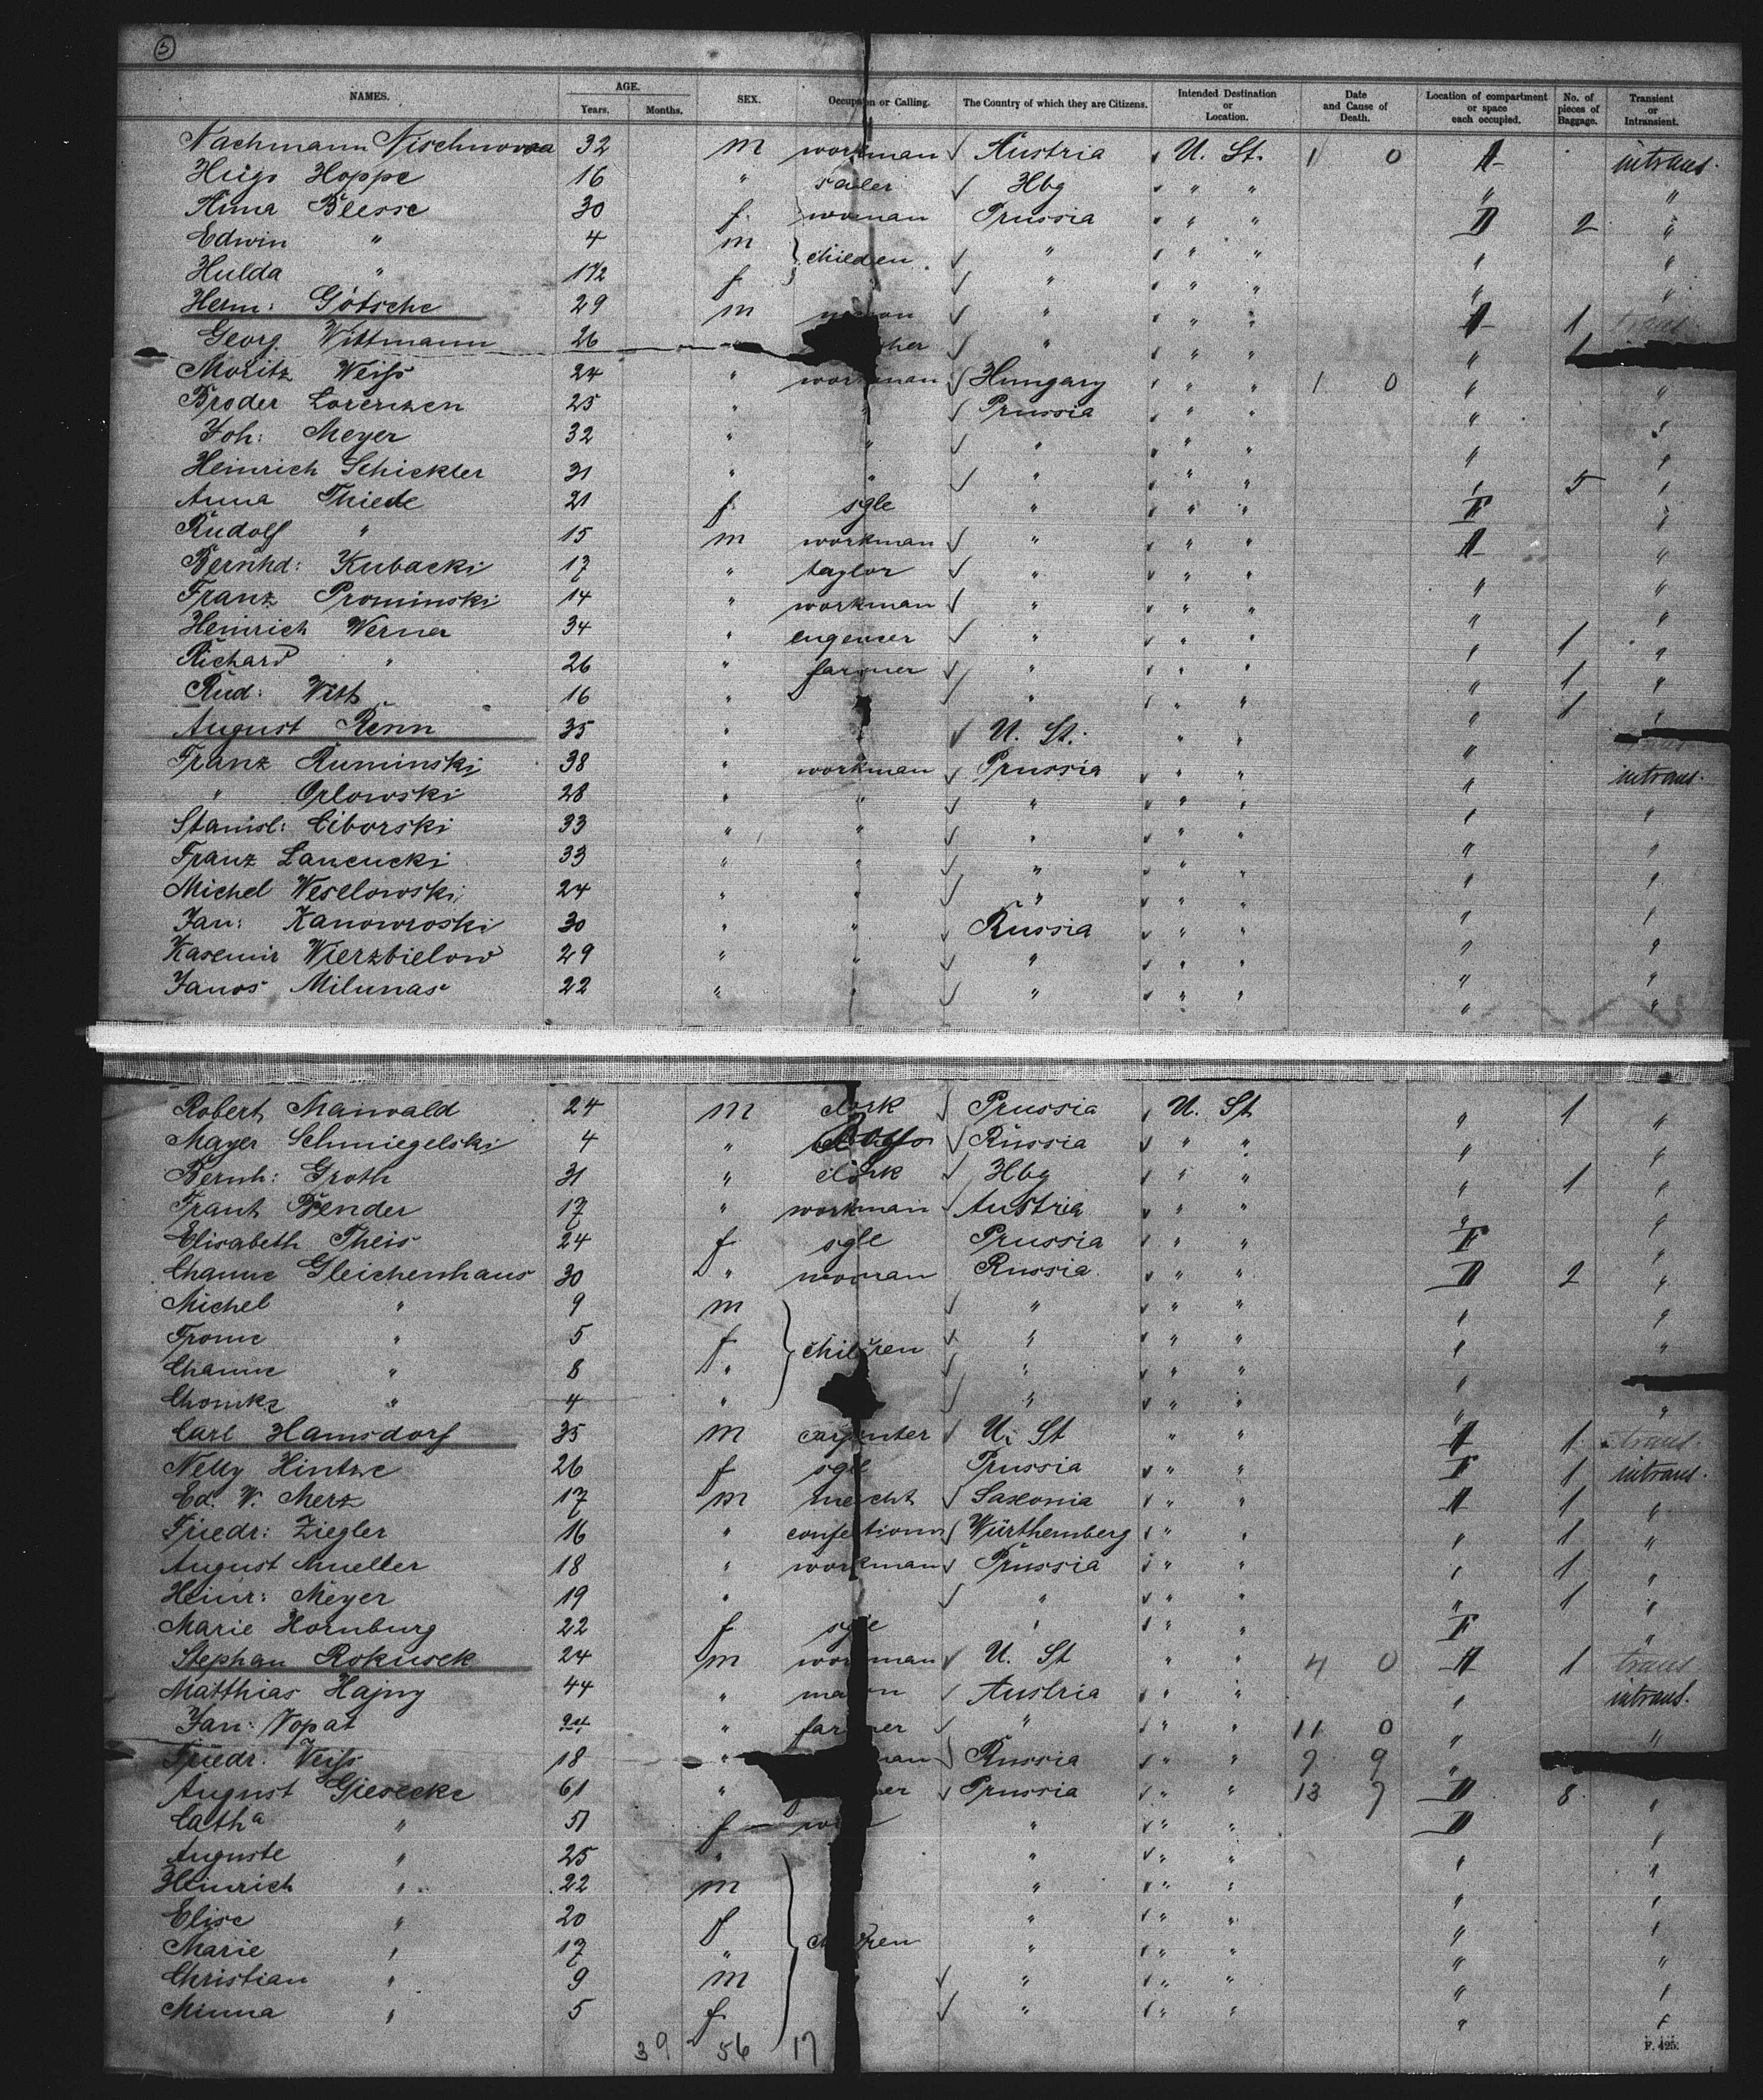 5
NAMES. AGE. Years. Months. SEX. Occupation or Calling. The Country of which they are Citizens. Intended Destination or Location. Date and Cause of Death. Location of compartment or space each occupied. No. of pieces of Baggage. Transient or Intransient.
Nachmann 32 m workman Austria U. St. 1 0 II intrans.
Hugo Hoppe 16 " Hbg " " " "
Anna Blesse 30 f. woman Prussia " " II 2 "
Edwin " 4 m children " " " " "
Hulda " 1 1/2 f " " " " "
Herm: Götsche 29 m " " " II 1 trans
Georg Wittmann 26 " " " " " 1
Moritz Weiss 24 " workman Hungary " " 1 0 " "
Broder Lorenzen 25 " " Prussia " " " "
Joh: Meyer 32 " " " " " " "
Heinrich Schickler 31 " " " " " " 5 "
Anna Thiede 21 f sgle " " " F "
Rudolf " 15 m workman " " " II "
Bernhd: Kubacki 17 " taylor " " " " "
Franz Prominski 14 " workman " " " " "
Heinrich Werner 34 " engeneer " " " " 1 "
Richard " 26 " farmer " " " " 1 "
Rud: Witt 16 " " " " " 1 "
August Renn 35 " U. St. " " " trans
Franz Ruminski 38 " workman Prussia " " " intrans.
" Orlowski 28 " " " " " " "
Stanisl: Ciborski 33 " " " " " " "
Franz Lancucki 33 " " " " " " "
Michel Weselowski 24 " " " " " " "
Jan: Kanowroski 30 " " Russia " " " "
Kasemir Wierzbielow 29 " " " " " " "
Janos Milunas 22 " " " " " " "
Robert Maiwald 24 m clerk Prussia U. St " 1 "
Mayer Schmiegelski 4 " Russia " " " "
Bernh: Groth 31 " clerk Hbg " " " 1 "
Frant Bender 17 " workman Austria " " " "
Elisabeth Theis 24 f sgle Prussia " " F "
Channe Gleichenhaus 30 " woman Russia " " II 2 "
Michel " 9 m children " " " " "
Frome " 5 f " " " " "
Channe " 8 " " " " "
Chomke " 4 " " " " " "
Carl Hamsdorf 35 m carpenter U. St " " II 1 trans
Nelly Hintze 26 f sgle Prussia " " F 1 intrans.
Ed. W. Merz 17 m mercht Saxonia " " II 1 "
Friedr: Ziegler 16 " confectioner Würthemberg " " " 1 "
August Mueller 18 " workman Prussia " " " 1 "
Heinr: Meyer 19 " " " " " 1 "
Marie Hornburg 22 f sgle " " " F "
Stephan Rokusek 24 m workman U. St " " 4 0 II 1 trans
Matthias Hajny 44 " mason Austria " " " intrans.
Jan: Vopat " farmer " " " 11 0 " "
Friedr: Veiss 18 " Russia " " 7 9 "
August Giesecke 61 " Prussia " " 13 7 II 8 "
Catha " 51 f " " " II "
Auguste " 25 " " " " " "
Heinrich " 22 m " " " " "
Elise " 20 f " " " " "
Marie " 17 " children " " " " "
Christian " 9 m " " " " "
Minna " 5 f " " " " "
39 56 17
F. 425.